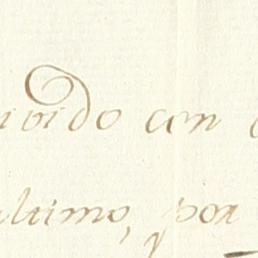 ivido con
ltimo, por